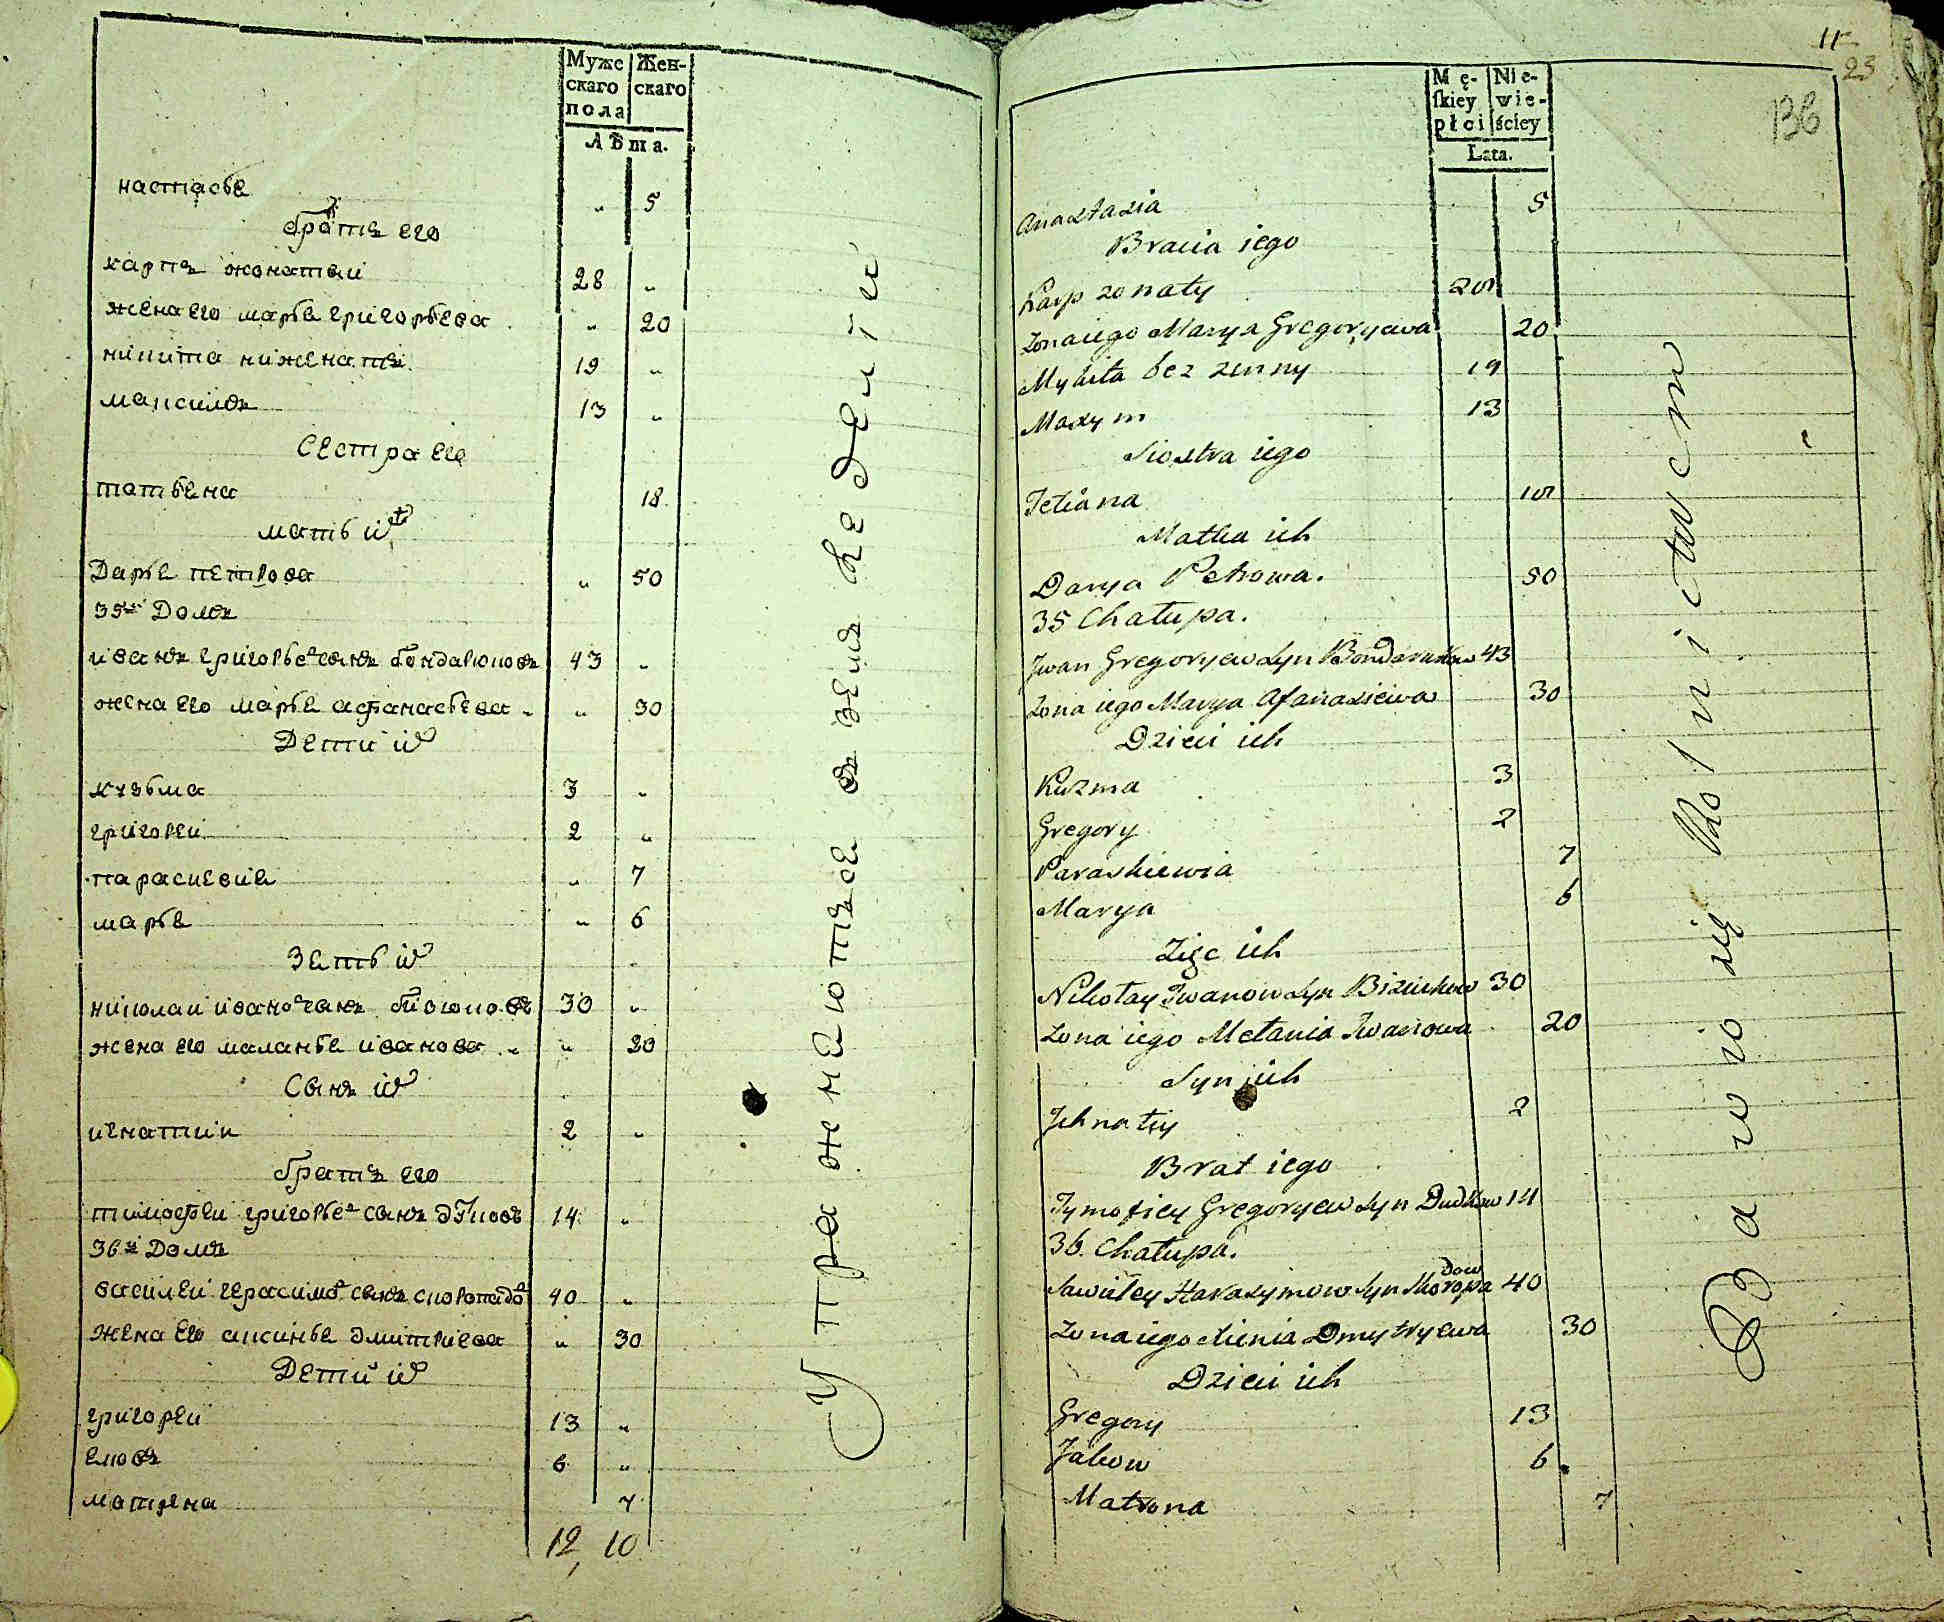 Муже Жен-
скаго скаго
пола
Лѣта.
настасья „ 5
братя его
карпъ жонатыи 28 „
жена его марья григорьева „ 20
никита ниженатъ 19 „
максимъ 13 „
сестра его
татьяна 18
мать их
Дарья петрова „ 50
35й Домъ
иванъ григорьевъ сынъ бондарюковъ 43 „
жена его марья афанасьева „ 30
Дети их
кузьма 3 „
григореи 2 „
параскевия „ 7
марья „ 6
Зять их
николаи ивановъ сынъ 30 „
жена его маланья иванова „ 20
Сынъ их
игнатии 2 „
братъ его
тимофеи григорьевъ сынъ дудковъ 14 „
36й Домъ
василеи герасимовъ сынъ скоропадовъ 40 „
жена его аксинья дмитриева „ 30
Дети их
григореи 13 „
яковъ 6 „
матрена 7
12, 10
Упражняются въ земле
11
23
136
Mę- Nie-
ſkiey wie-
płci ściey
Lata.
Anastasia 5
Bracia iego
Karp zonaty 28
Zona iego Marya Gregoryewa 20
Mykita bez zenny 19
Maxym 13
Siostra iego
Tetiana 18
Matka ich
Darya Petrowa. 50
35 Chałupa.
Jwan Gregoryew Syn Bondarukow 43
Zona iego Marya Afanasiewa 30
Dzieci ich
Kuzma 3
Gregory 2
Paraskiewia 7
Marya 6
Zięc ich
Nikołay Jwanow Syn 30
Zona iego Mełania Jwanowa 20
Syn ich
Jehnatiy 2
Brat iego
Tymofiey Gregoryew Syn Dudkow 14
36. Chałupa.
Wasiley Harasymow Syn Skoropadow 40
Zona iego Dmytryewa 30
Dzieci ich
Gregory 13
Jakow 6
Matrona 7
Bawio się Rolnictwem